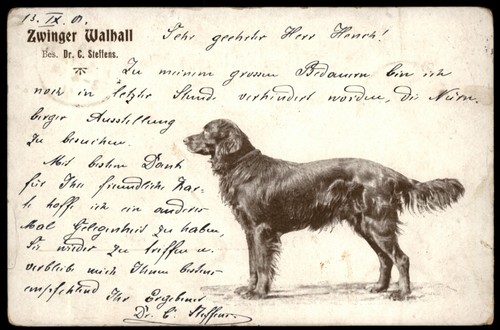 13. IX. 01.
Zwinger Walhall
Bes. Dr. C. Steffens.
Sehr geehrter Herr Hensch!
Zu meinem grossen Bedauern bin ich
noch in letzter Stund. verhindert worden, die Nürn-
berger Ausstellung
zu besuchen.
Mit bestem Dank
für Ihre freundliche Kar-
te hoff ich ein anderes
Mal Gelegenheit zu haben,
Sie wieder zu treffen u.
verbleib mich Ihnen bestens
empfehlend Ihr Ergebener
Dr. C. Steffens.